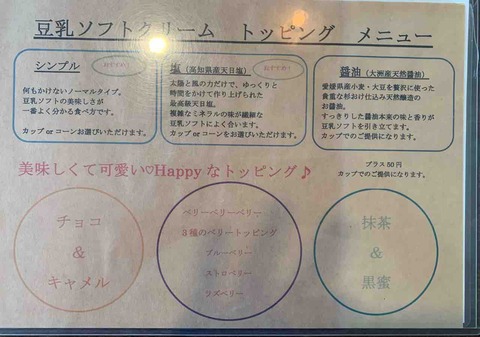 豆乳ソフトクリーム　トッピング　メニュー
シンプル
おすすめ！
何もかけないノーマルタイプ。
豆乳ソフトの美味しさが
一番よく分かる食べ方です。
カップ or コーンお選びいただけます。
塩（高知県産天日塩）
おすすめ！
太陽と風の力だけで、ゆっくりと
時間をかけて作り上げられた
最高級天日塩。
複雑なミネラルの味が繊細な
豆乳ソフトによく合います。
カップ or コーンをお選びいただけます。
醤油（大洲産天然醤油）
愛媛県産小麦・大豆を贅沢に使った
貴重な杉おけ仕込み天然醸造の
お醤油。
すっきりした醤油本来の味と香りが
豆乳ソフトを引き立てます。
カップでのご提供になります。
美味しくて可愛い♡Happy なトッピング♪
プラス 50 円
カップでのご提供になります。
チョコ
&
キャメル
ベリーベリーベリー
3 種のベリートッピング
ブルーベリー
ストロベリー
ラズベリー
抹茶
&
黒蜜